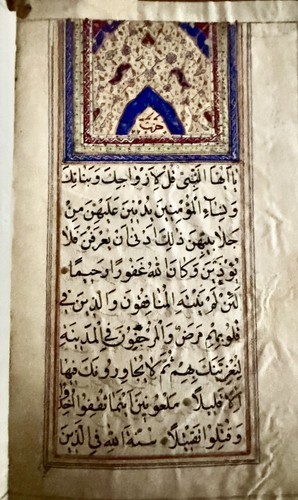 حزب
يَا اَيُّهَا النَّبِيُّ قُلْ لِاَزْوَاجِكَ وَبَنَاتِكَ
وَنِسَاءِ الْمُؤْمِنِينَ يُدْنِينَ عَلَيْهِنَّ مِنْ
جَلَابِيبِهِنَّ ذٰلِكَ اَدْنٰى اَنْ يُعْرَفْنَ فَلَا
يُؤْذَيْنَ وَكَانَ اللهُ غَفُورًا رَحِيمًا
لَئِنْ لَمْ يَنْتَهِ الْمُنَافِقُونَ وَالَّذِينَ فِي
قُلُوبِهِمْ مَرَضٌ وَالْمُرْجِفُونَ فِي الْمَدِينَةِ
لَنُغْرِيَنَّكَ بِهِمْ ثُمَّ لَا يُجَاوِرُونَكَ فِيهَا
اِلَّا قَلِيلًا مَلْعُونِينَ اَيْنَمَا ثُقِفُوا اُخِذُوا
وَقُتِّلُوا تَقْتِيلًا سُنَّةَ اللهِ فِي الَّذِينَ